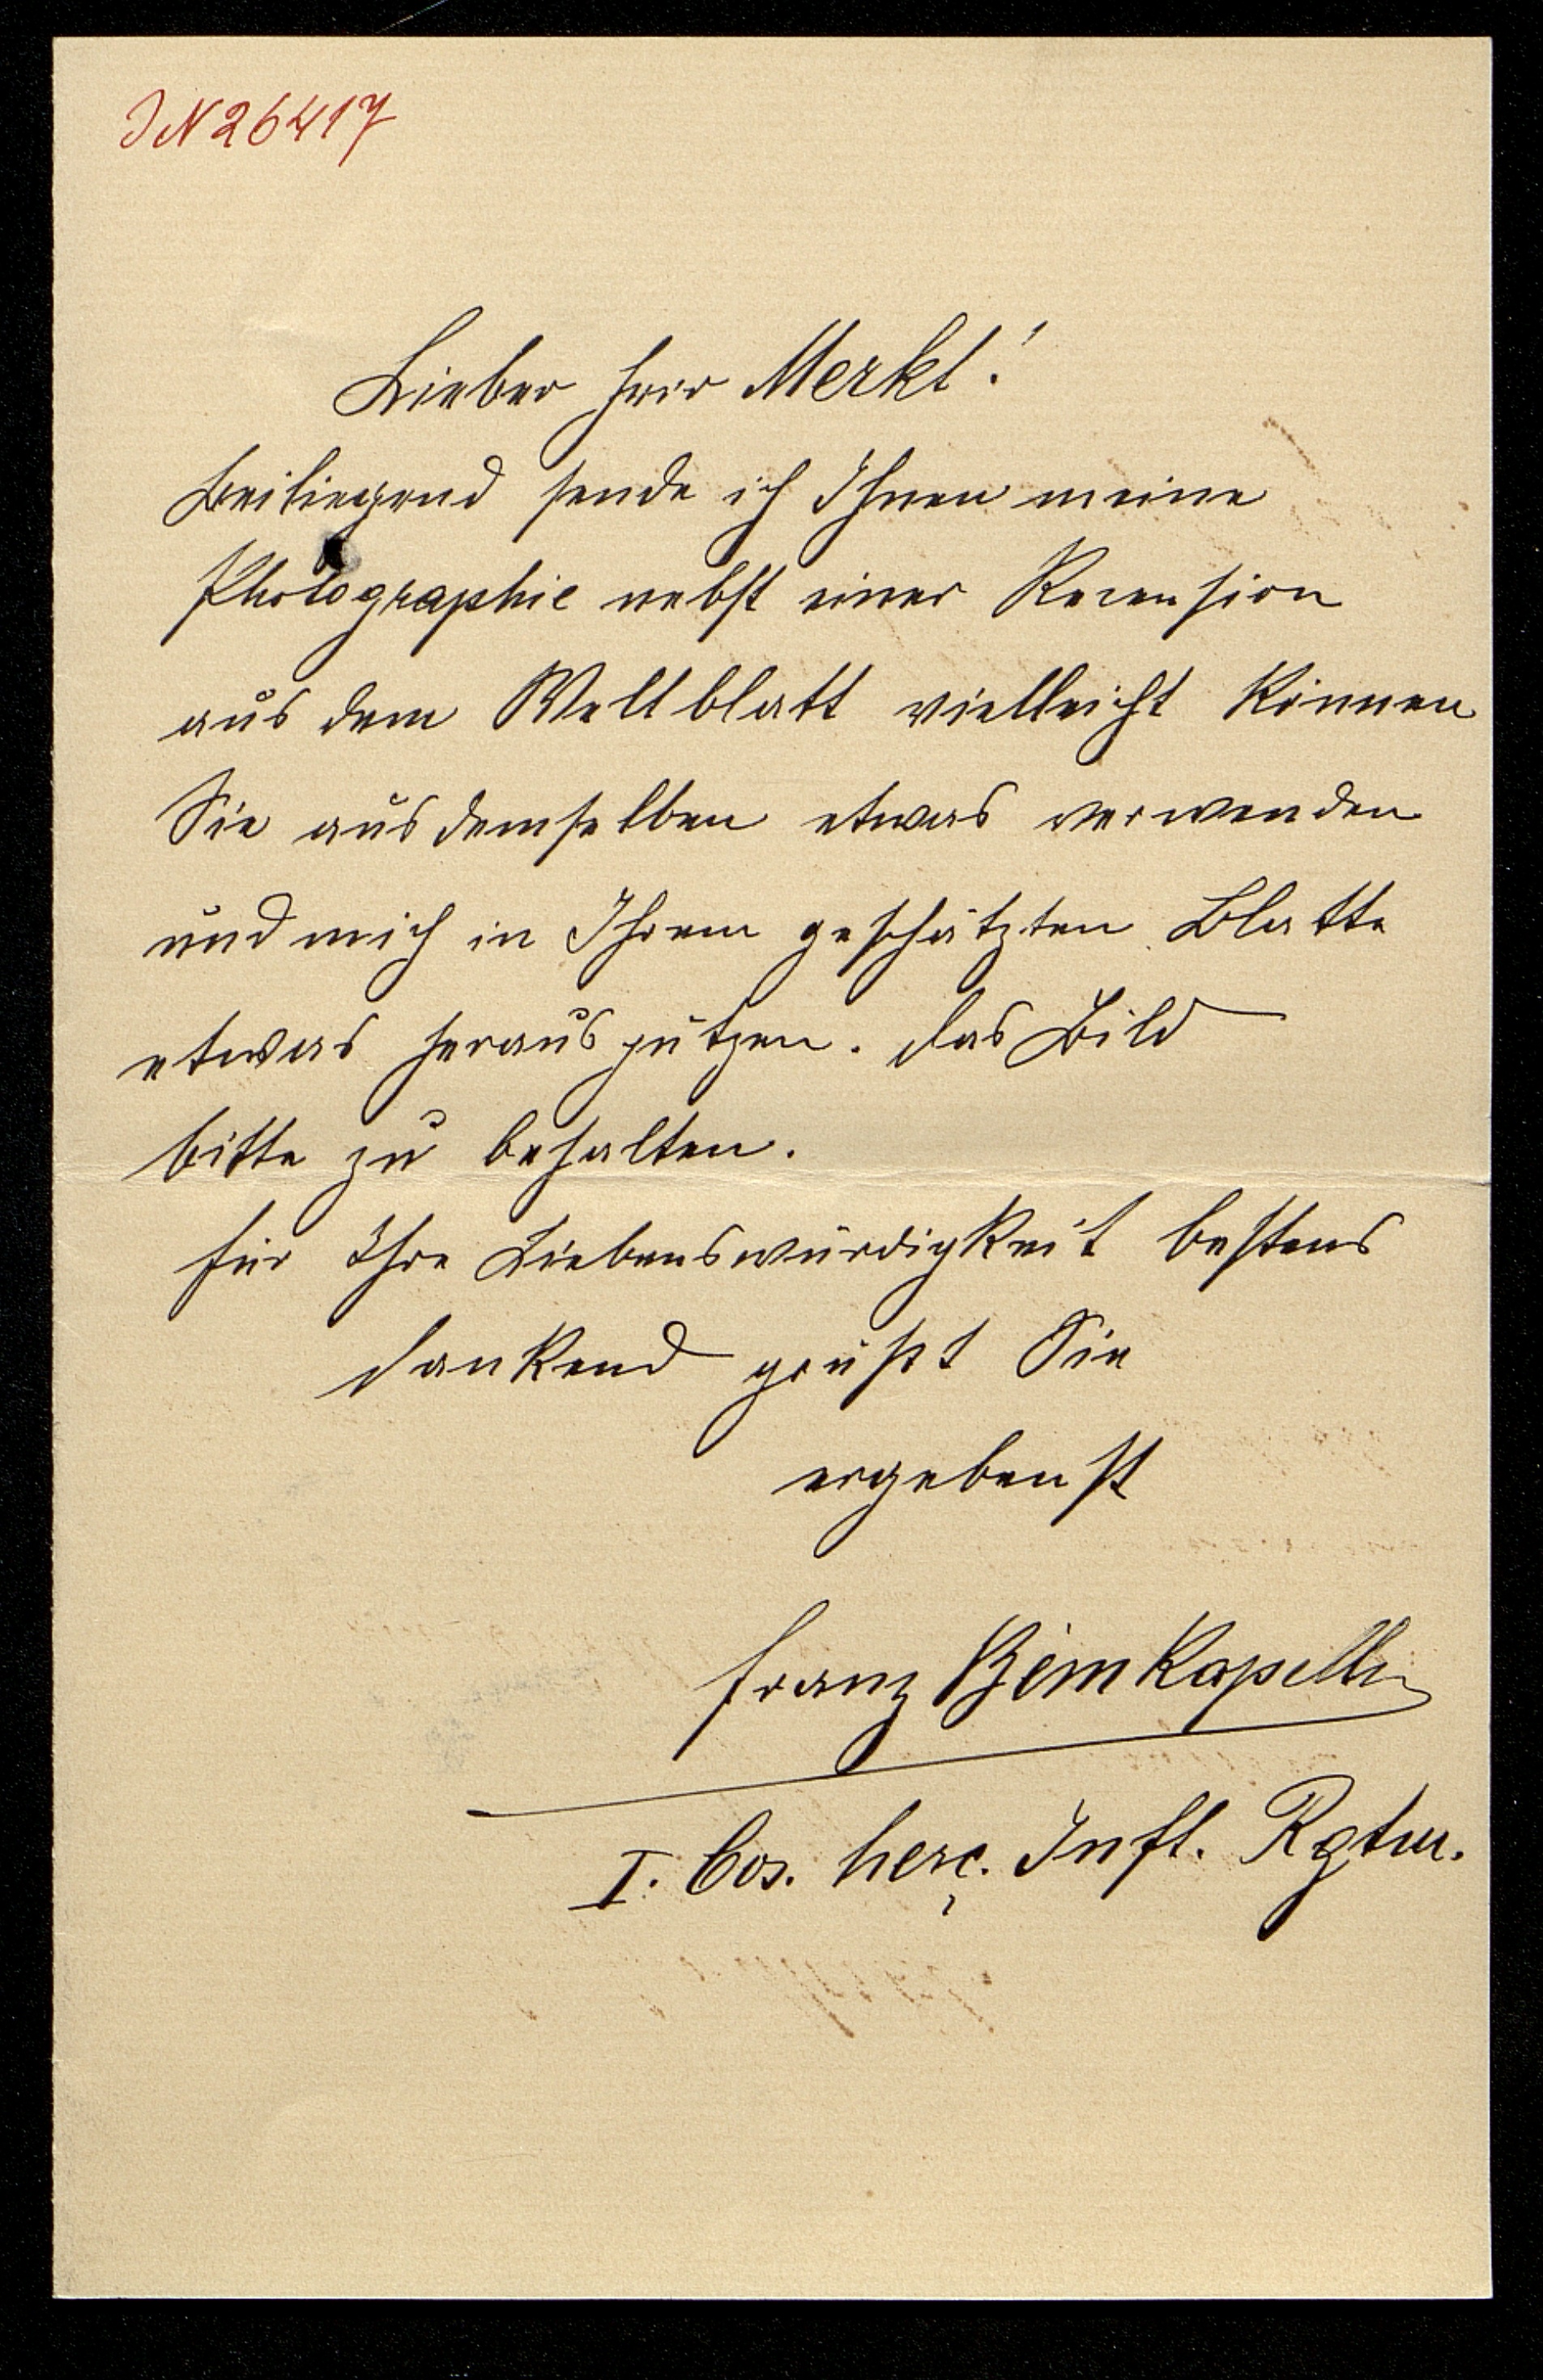 IN 26417
Lieber Herr Merkl!
Beiliegend sende ich Ihnen meine
Photographie nebst einer Recension
aus dem Weltblatt vielleicht können
Sie aus demselben etwas verwenden
und mich in Ihrem geschätzten Blatte
etwas herausputzen. Das Bild
bitte zu behalten.
Für Ihre Liebenswürdigkeit bestens
dankend grüßt Sie
ergebenst
Franz Kapellm
I. bos. herc. Inft. Rgtm.